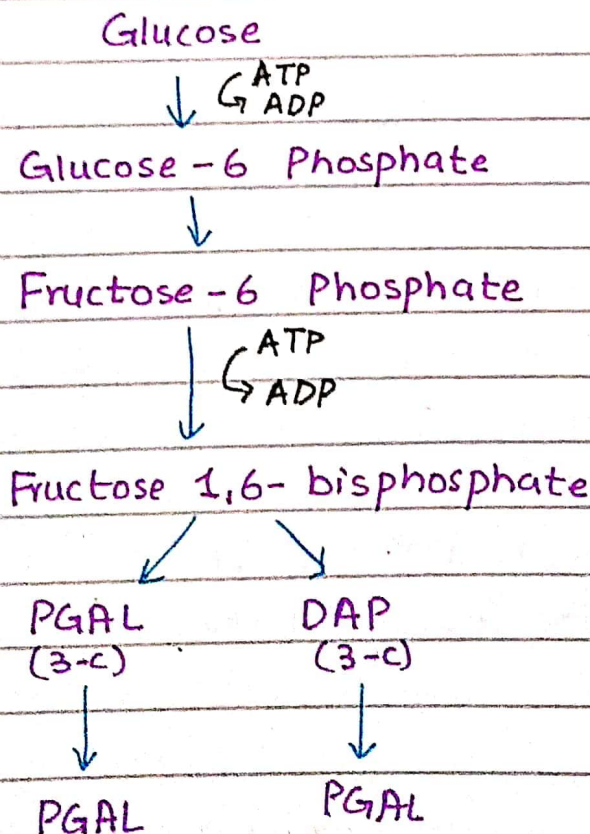 Glucose
ATP
ADP
Glucose - 6 Phosphate
Fructose - 6 Phosphate
ATP
ADP
Fructose 1,6- bisphosphate
PGAL DAP
(3-C) (3-C)
PGAL PGAL